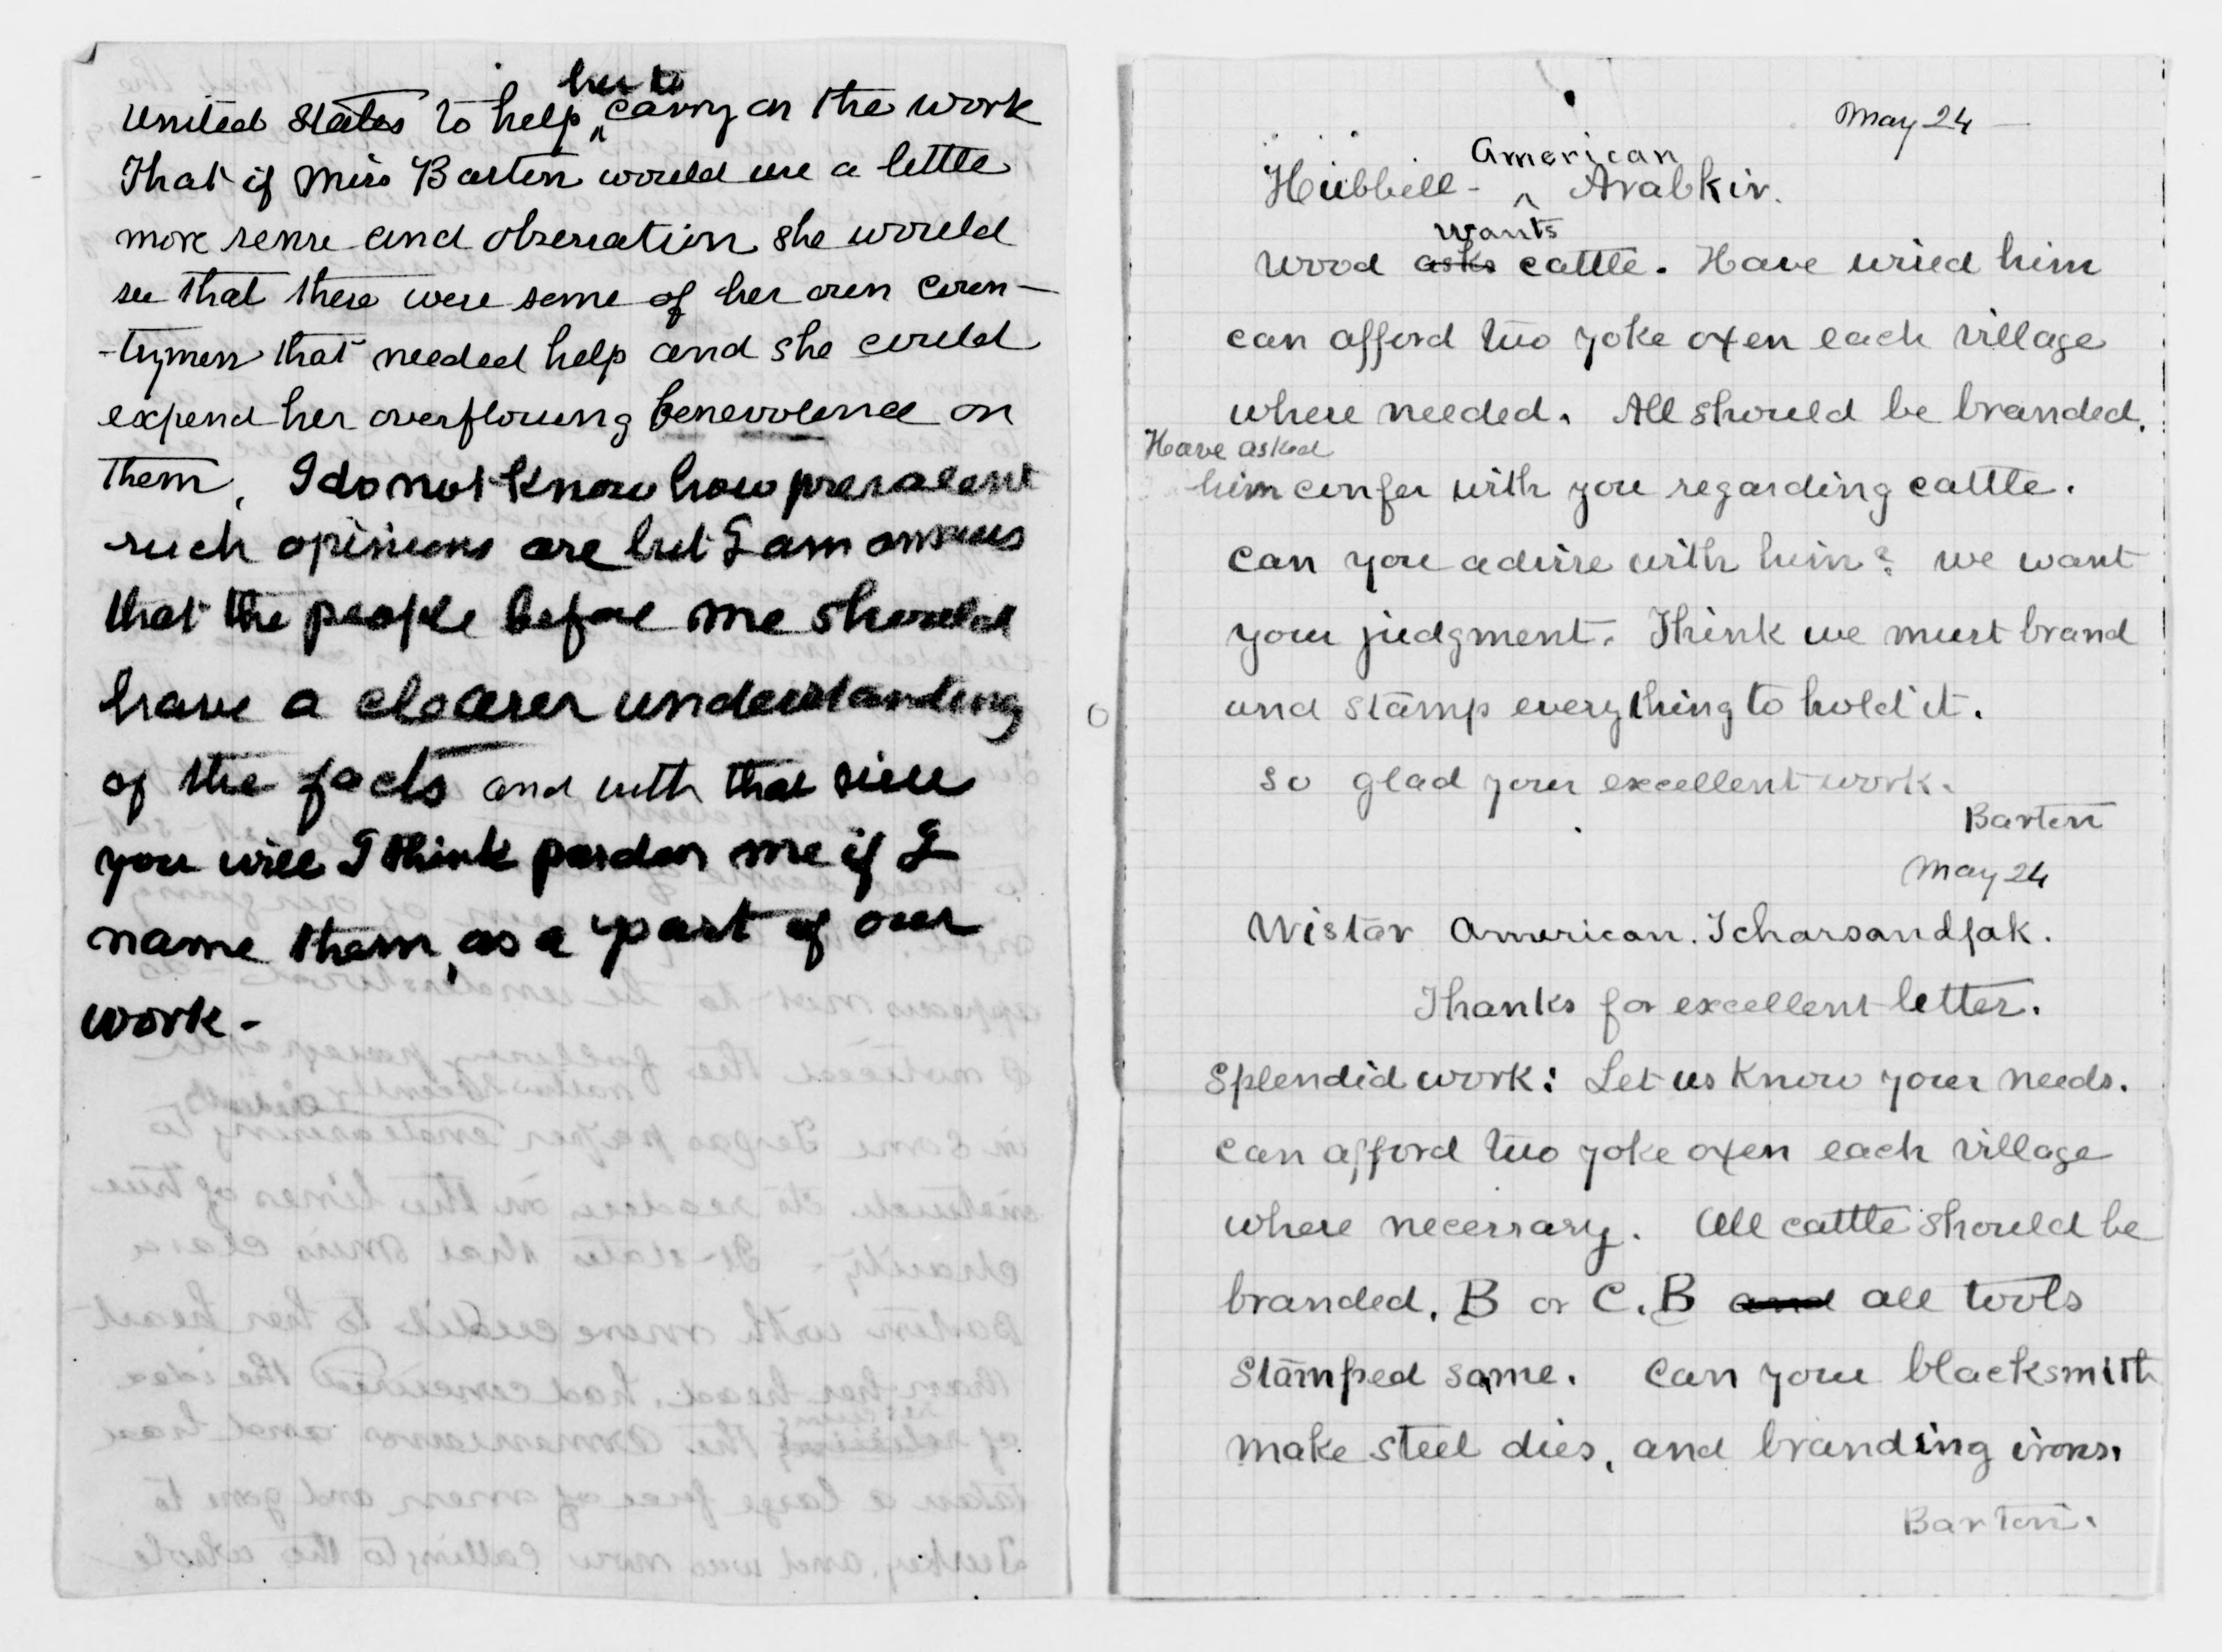 United States to help her to carry on the work
That if Miss Barton would use a little
more sense and observation she would
see that there were some of her own coun-
-trymen that needed help and she could
expend her overflowing benevolence on
them, I do not know how prevalent
such opinions are but I am anxious
that the people before me should
have a clearer understanding
of the facts and with that view
you will I think pardon me if I
name them, as a part of our
work -
May 24
Hubbell - American Arabkir.
Wood asks wants cattle. Have wired him
can afford two yoke oxen each village
where needed. All should be branded.
Have asked
him confer with you regarding cattle.
Can you advise with him? We want
your judgment. Think we must brand
and stamp everything to hold it.
So glad your excellent work.
Barton
May 24
Wistar American. Tcharsandjak.
Thanks for excellent letter.
Splendid work: Let us know your needs.
Can afford two yoke oxen each village
where necessary. All cattle should be
branded. B or C.B and all tools
stamped same. Can your blacksmith
make steel dies, and branding irons.
Barton.